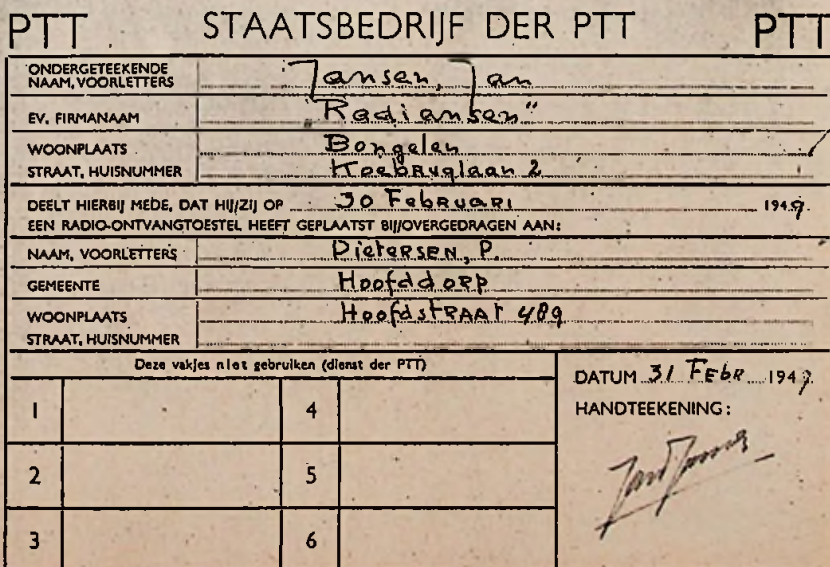 PTT STAATSBEDRIJF DER PTT PTT
ONDERGETEEKENDE
NAAM, VOORLETTERS Jansen, Jan
EV. FIRMANAAM "Radiansen"
WOONPLAATS Bongelen
STRAAT, HUISNUMMER Koebruglaan 2
DEELT HIERBIJ MEDE, DAT HIJ/ZIJ OP 30 Februari 1949.
EEN RADIO-ONTVANGTOESTEL HEEFT GEPLAATST BIJ/OVERGEDRAGEN AAN:
NAAM, VOORLETTERS Pietersen, P.
GEMEENTE Hoofddorp
WOONPLAATS Hoofdstraat 489
STRAAT, HUISNUMMER
Deze vakjes niet gebruiken (dienst der PTT)
DATUM 31 Febr 1949.
HANDTEEKENING:
1 4
2 5
3 6